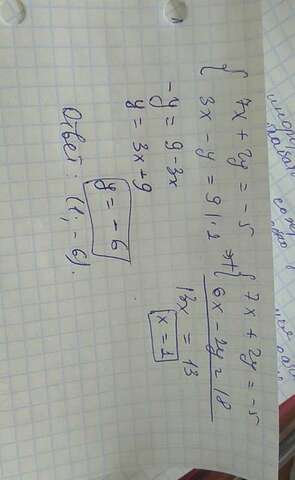 { 7x + 2y = -5
3x - y = 9 | · 2 ⇒ + { 7x + 2y = -5
6x - 2y = 18
13x = 13
x = 1
-y = 9 - 3x
y = 3x + 9
y = -6
Ответ: (1; -6).